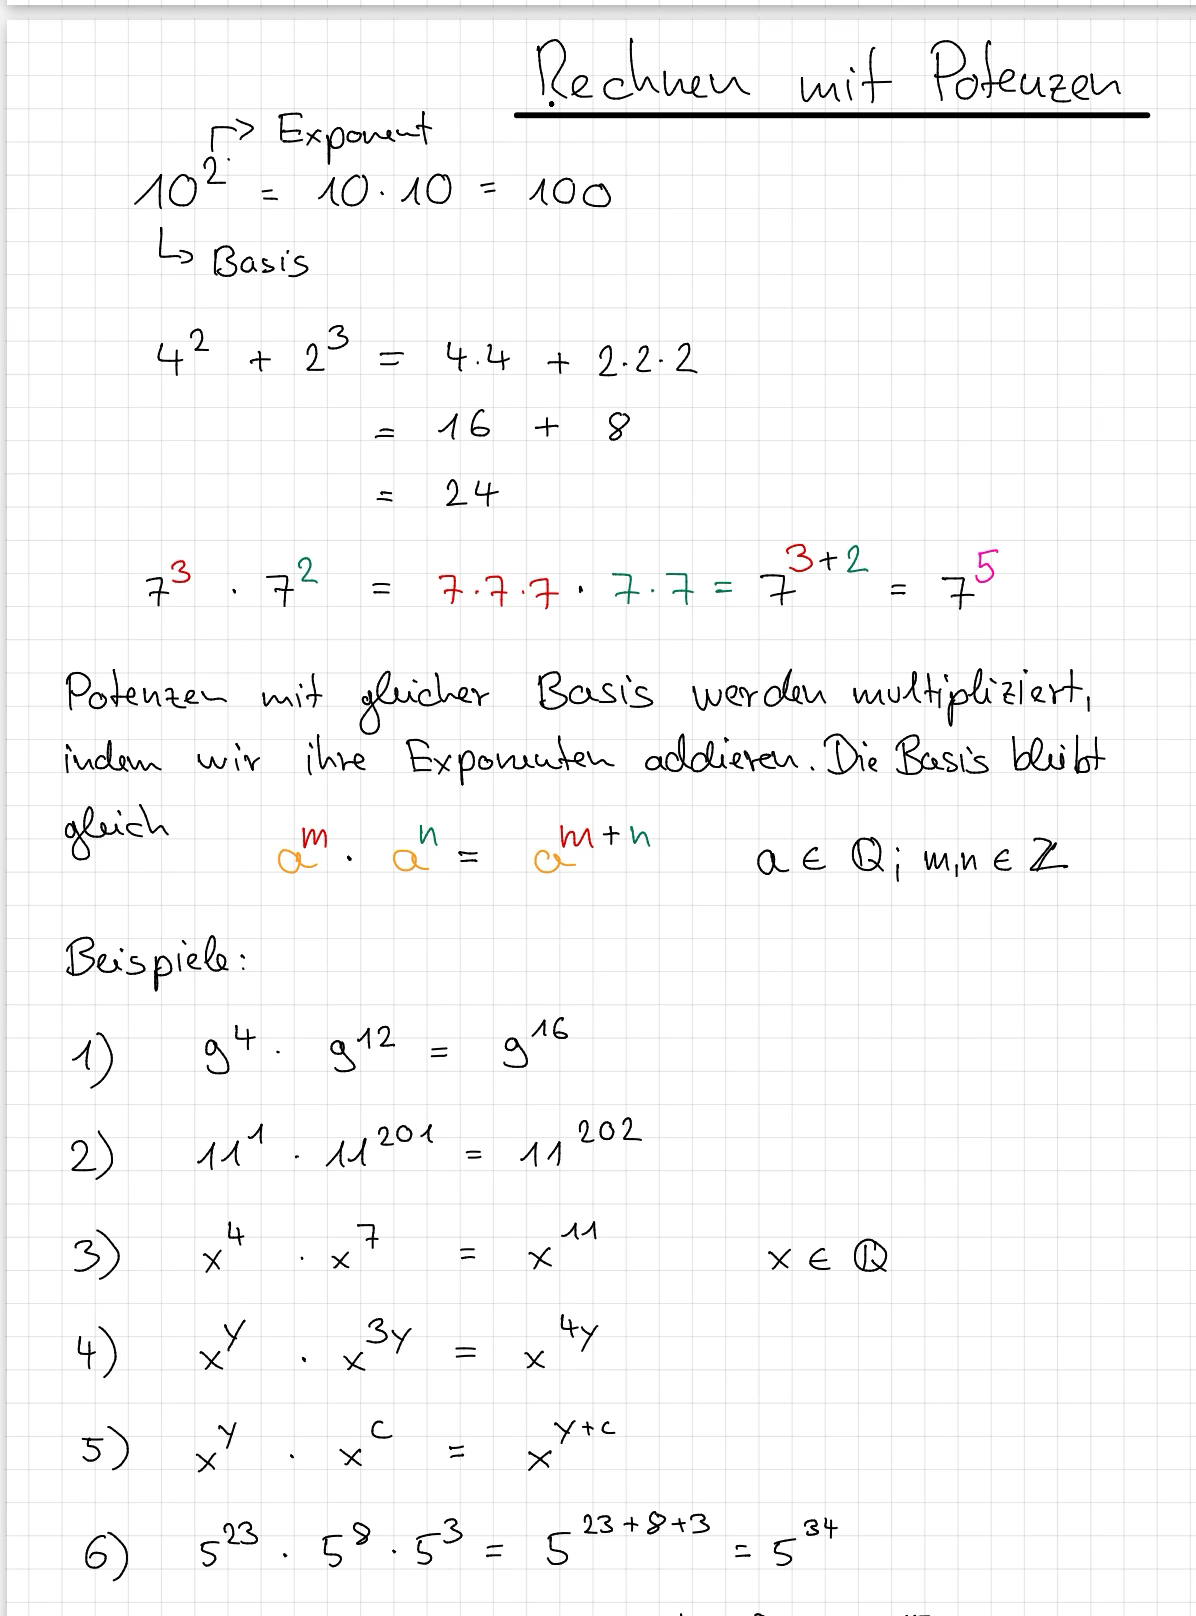 Rechnen mit Potenzen
↱ Exponent
10² = 10 · 10 = 100
↳ Basis
4² + 2³ = 4·4 + 2·2·2
= 16 + 8
= 24
7³ · 7² = 7·7·7 · 7·7 = 7³⁺² = 7⁵
Potenzen mit gleicher Basis werden multipliziert,
indem wir ihre Exponenten addieren. Die Basis bleibt
gleich
a^m · a^n = a^(m+n) a ∈ ℚ; m,n ∈ ℤ
Beispiele:
1) 9⁴ · 9¹² = 9¹⁶
2) 11¹ · 11²⁰¹ = 11²⁰²
3) x⁴ · x⁷ = x¹¹ x ∈ ℚ
4) x^y · x^3y = x^4y
5) x^y · x^c = x^(y+c)
6) 5²³ · 5⁸ · 5³ = 5²³⁺⁸⁺³ = 5³⁴